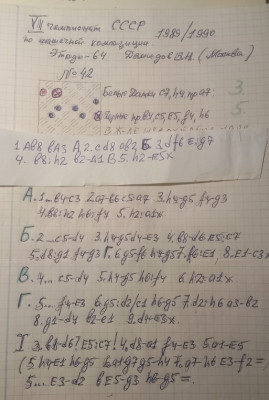 XV чемпионат СССР 1989/1990
по шашечной композиции
Этюды-64 (Москва)
№ 42
Белые: Дамки c7, h4, пр a7:
3.
пр b4, c5, e5, f4, h6
5
1.Ab8 ba3 A,2.cd8 ab2 Б.3.df6 Eig7
4. b8:h2 b2-a1 В 5.h2-e5x
А.1...b4c3 2.a7-b6 c5:a7 3.h4-g5 f4-g3
4.b8:h2 h6:f4 5.h2:a1x
Б.2...c5-d4 3.h4g5 d4-e3 4.b8-d6 E5:c7
5.d8g1 f4-g3 Г.6.g5-f6 h4g5 7.f6:E1, 8.E1-c3x
В.4...c5-d4 5.h4-g5 h6:f4 6.h2:a1x
Г.5...f4-E3 6.g5:d2/c1 h6g5 7.d2:h6 a3-b2
8.g1-d4 b2-c1 9.d4-E3x
I 3.b8-d6? E5:c7! 4.d8-a1 f4-E3 5.a1-E5
(5.h4-E1 h6-g5 6.a1-g7 g5-h4 7.g7-h6 E3-f2=,
5...E3-d2 6.E5-g3 h6-g5=.